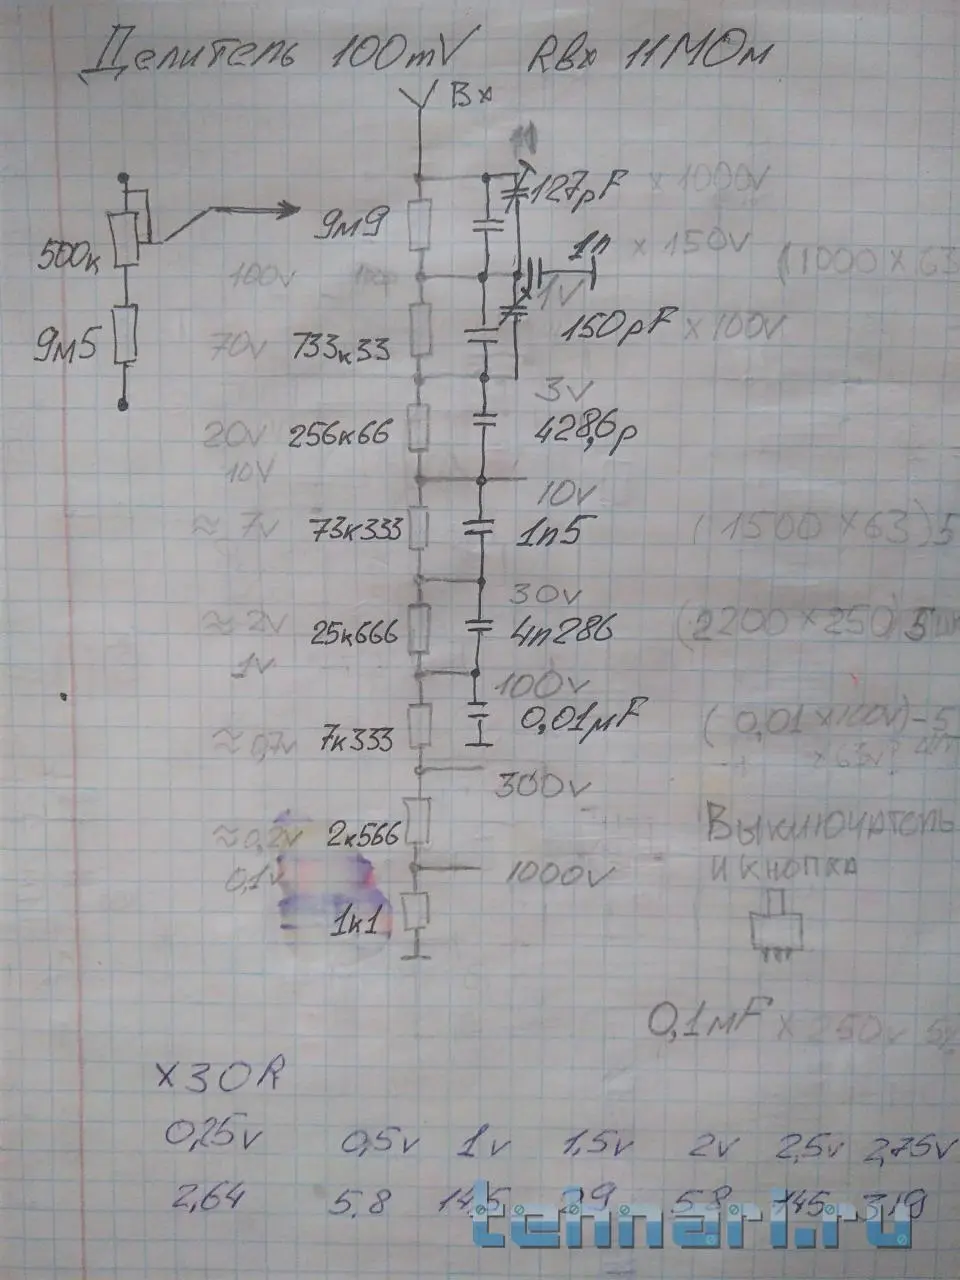 Делитель 100mV Rвх 11МОм
Вх
127pF x 1000v
9м9
1n x 150v
(1000 x 63
500к
100v
1v
150pF x 100v
9м5
70v 733к33
3v
20v 256к66 428,6p
10v
10v
≈ 7v 73к333 1n5 (1500 x 63) 5
30v
≈ 2v 25к666 4n286 (2200 x 250) 5шт
1v
100v
≈ 0,7v 7к333 0,01мF (0,01 x 100v) - 5
x 63v?
300v
≈ 0,2v 2к566 Выключатель
0,1v 1000v и кнопка
1к1
0,1мF x 250v 5
x30R
0,25v 0,5v 1v 1,5v 2v 2,5v 2,75v
2,64 5.8 14,5 29 58 145 319
tehnari.ru